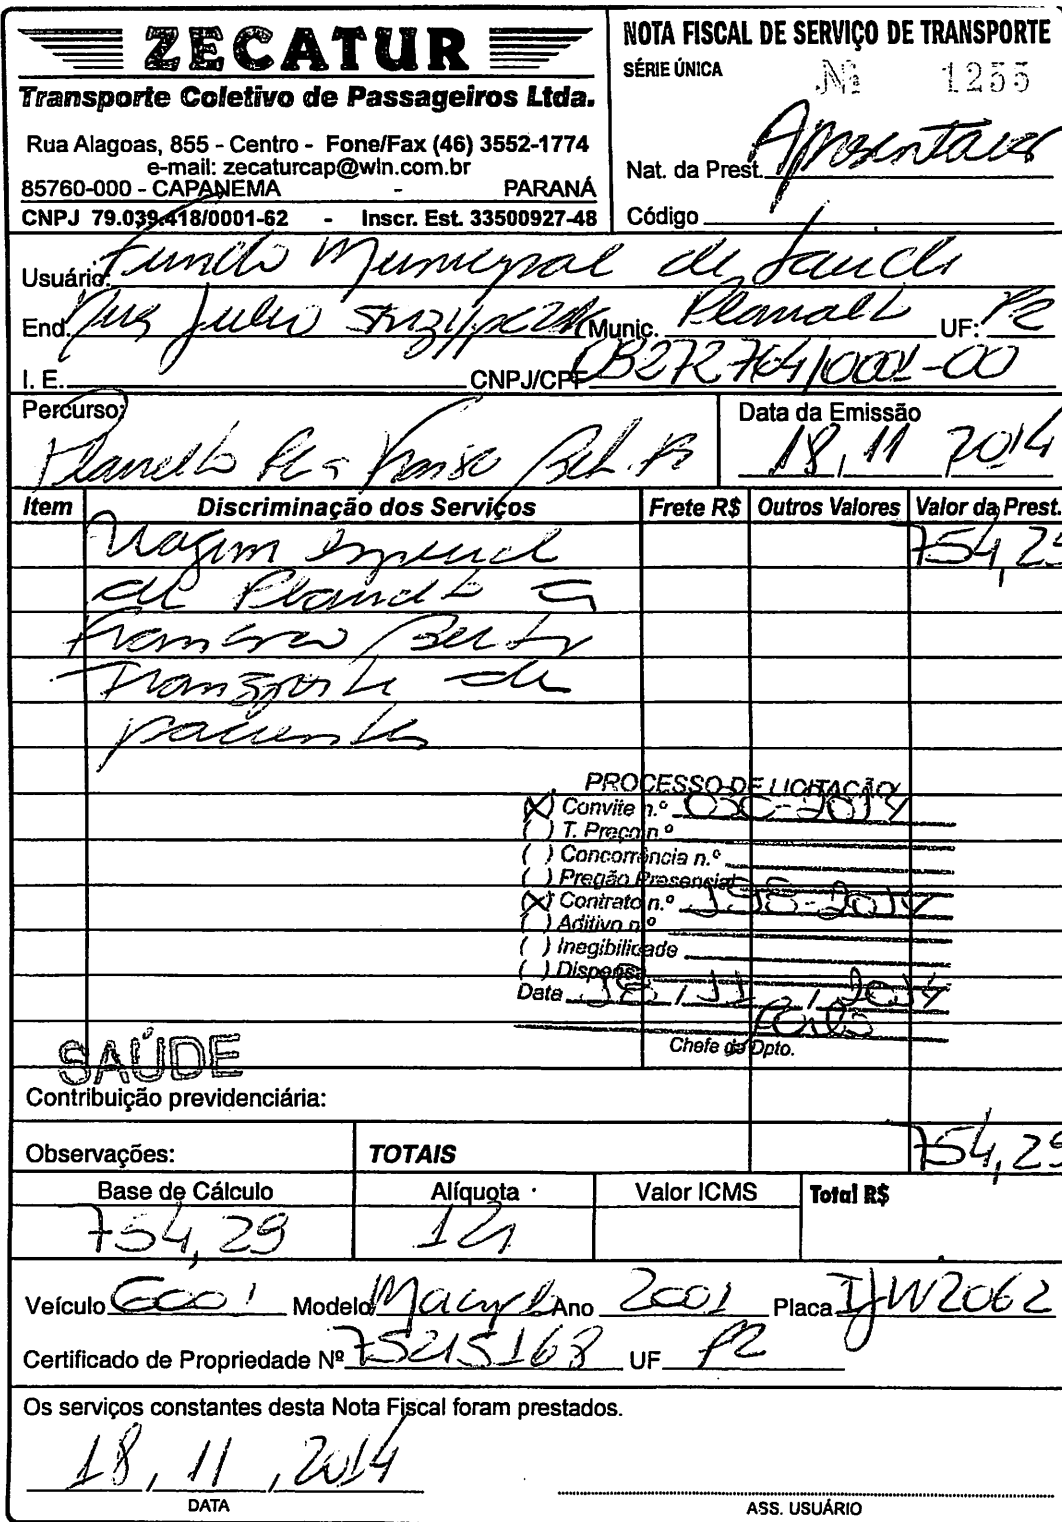 ZECATUR
Transporte Coletivo de Passageiros Ltda.
Rua Alagoas, 855 - Centro - Fone/Fax (46) 3552-1774
e-mail: zecaturcap@wln.com.br
85760-000 - CAPANEMA - PARANÁ
CNPJ 79.039.418/0001-62 - Inscr. Est. 33500927-48
NOTA FISCAL DE SERVIÇO DE TRANSPORTE
SÉRIE ÚNICA Nº 1255
Nat. da Prest.
Código
Usuário: Fundo Municipal de Saude
End. Rua Julio Munic. Planalto UF: PR
I. E. CNPJ/CPF
Percurso: Data da Emissão
Planalto Pr a Franso Bel. Pr 18, 11 2014
Item Discriminação dos Serviços Frete R$ Outros Valores Valor da Prest.
Viagem especial 754,29
de Planalto a
Francisco Beltr
Transporte de
pacientes
PROCESSO DE LICITAÇÃO
(X) Convite n.º
( ) T. Preço n.º
( ) Concorrência n.º
( ) Pregão Presencial
(X) Contrato n.º
( ) Aditivo n.º
( ) Inegibilidade
( ) Dispensa
Data 18, 11, 2014
Chefe do Dpto.
SAÚDE
Contribuição previdenciária:
Observações: TOTAIS 754,29
Base de Cálculo Alíquota Valor ICMS Total R$
754,29
Veículo Modelo Ano 2001 Placa IJW2062
Certificado de Propriedade Nº UF PR
Os serviços constantes desta Nota Fiscal foram prestados.
18, 11, 2014
DATA
ASS. USUÁRIO